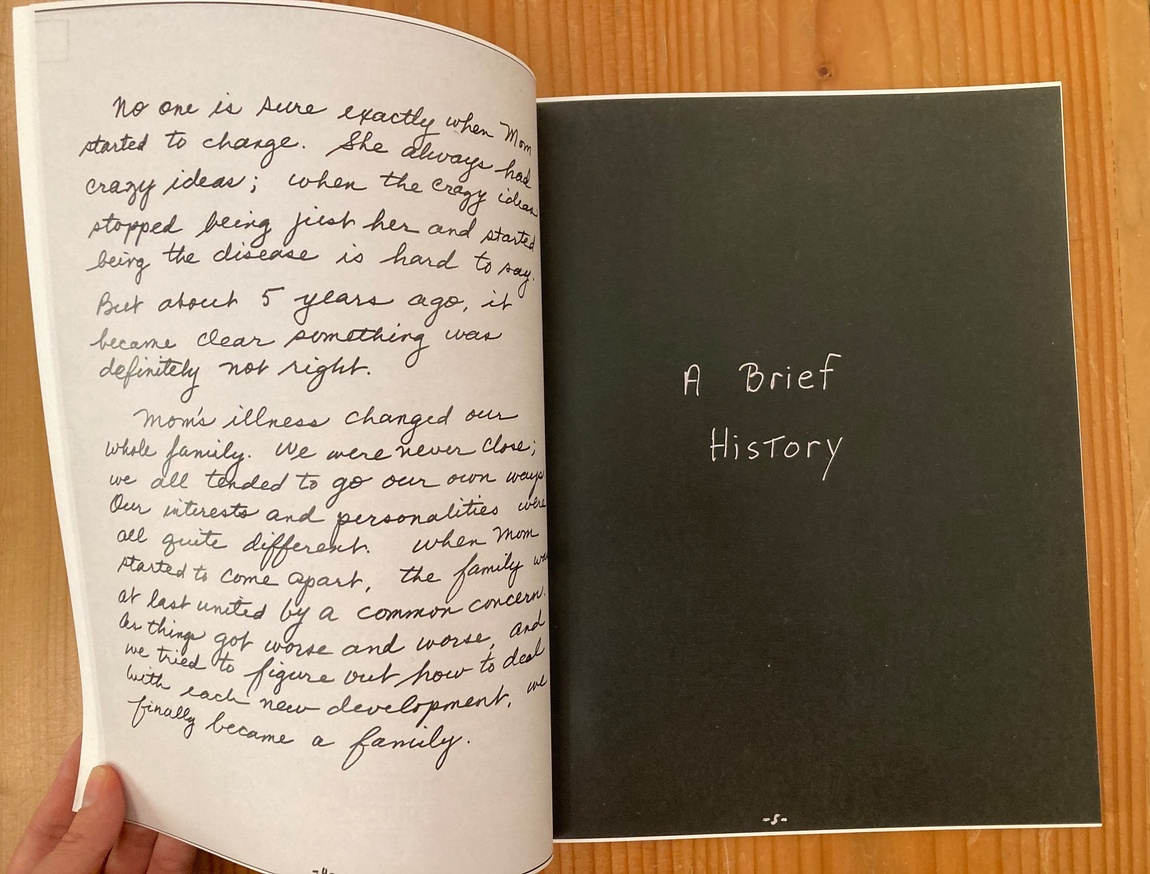 No one is sure exactly when Mom
started to change. She always had
crazy ideas; when the crazy ideas
stopped being just her and started
being the disease is hard to say.
But about 5 years ago, it
became clear something was
definitely not right.
Mom's illness changed our
whole family. We were never close;
we all tended to go our own ways
Our interests and personalities were
all quite different. When Mom
started to come apart, the family
at last united by a common concern.
As things got worse and worse, and
we tried to figure out how to deal
with each new development, we
finally became a family.
-4-
A Brief
History
-5-